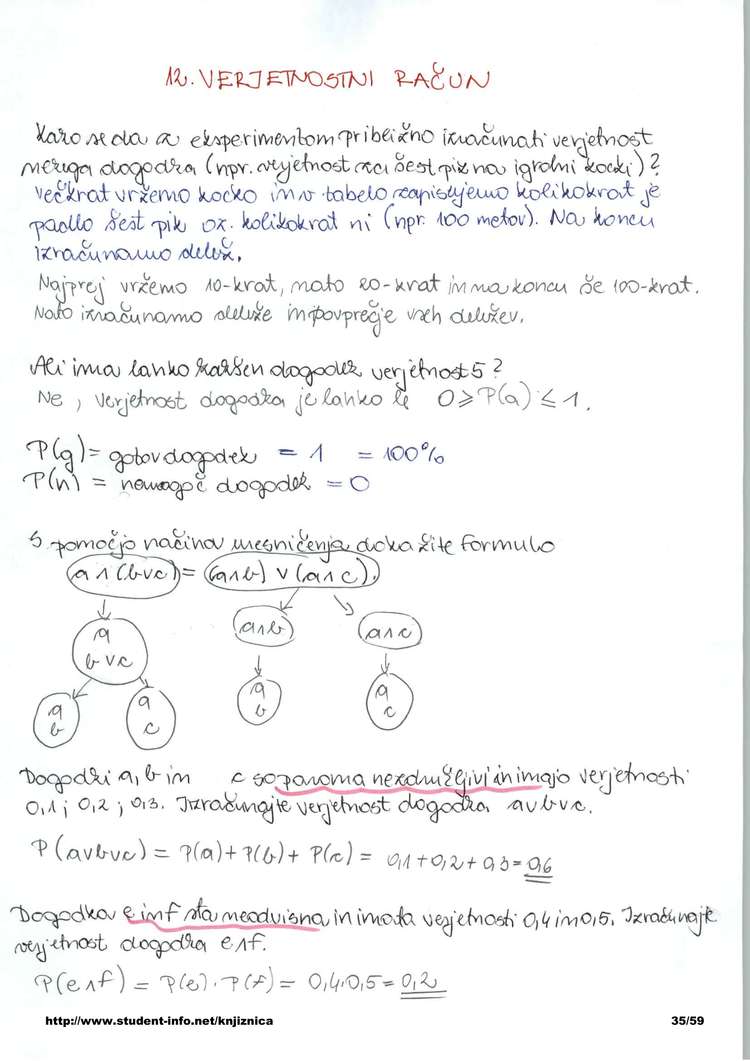 12. VERJETNOSTNI RAČUN
Kako se da z eksperimentom približno izračunati verjetnost
nekega dogodka (npr. verjetnost za šest pik na igralni kocki)?
Večkrat vržemo kocko in v tabelo zapisujemo kolikokrat je
padlo šest pik oz. kolikokrat ni (npr. 100 metov). Na koncu
izračunamo delež.
Najprej vržemo 10-krat, nato 20-krat in na koncu še 100-krat.
Nato izračunamo deleže in povprečje vseh deležev.
Ali ima lahko kakšen dogodek verjetnost 5?
Ne, verjetnost dogodka je lahko le 0 ⩾ P(a) ⩽ 1.
P(g) = gotov dogodek = 1 = 100%
P(n) = nemogoč dogodek = 0
S pomočjo načina mesničenja dokažite formulo
a ∧ (b∨c) = (a∧b) ∨ (a∧c).
a∧b a∧c
a
b∨c
a a a a
b c b c
Dogodki a, b in c so paroma nezdružljivi in imajo verjetnosti
0,1; 0,2; 0,3. Izračunajte verjetnost dogodka a∨b∨c.
P(a∨b∨c) = P(a) + P(b) + P(c) = 0,1 + 0,2 + 0,3 = 0,6
Dogodka e in f sta neodvisna in imata verjetnosti 0,4 in 0,5. Izračunajte
verjetnost dogodka e∧f.
P(e∧f) = P(e) · P(f) = 0,4·0,5 = 0,2
http://www.student-info.net/knjiznica 35/59